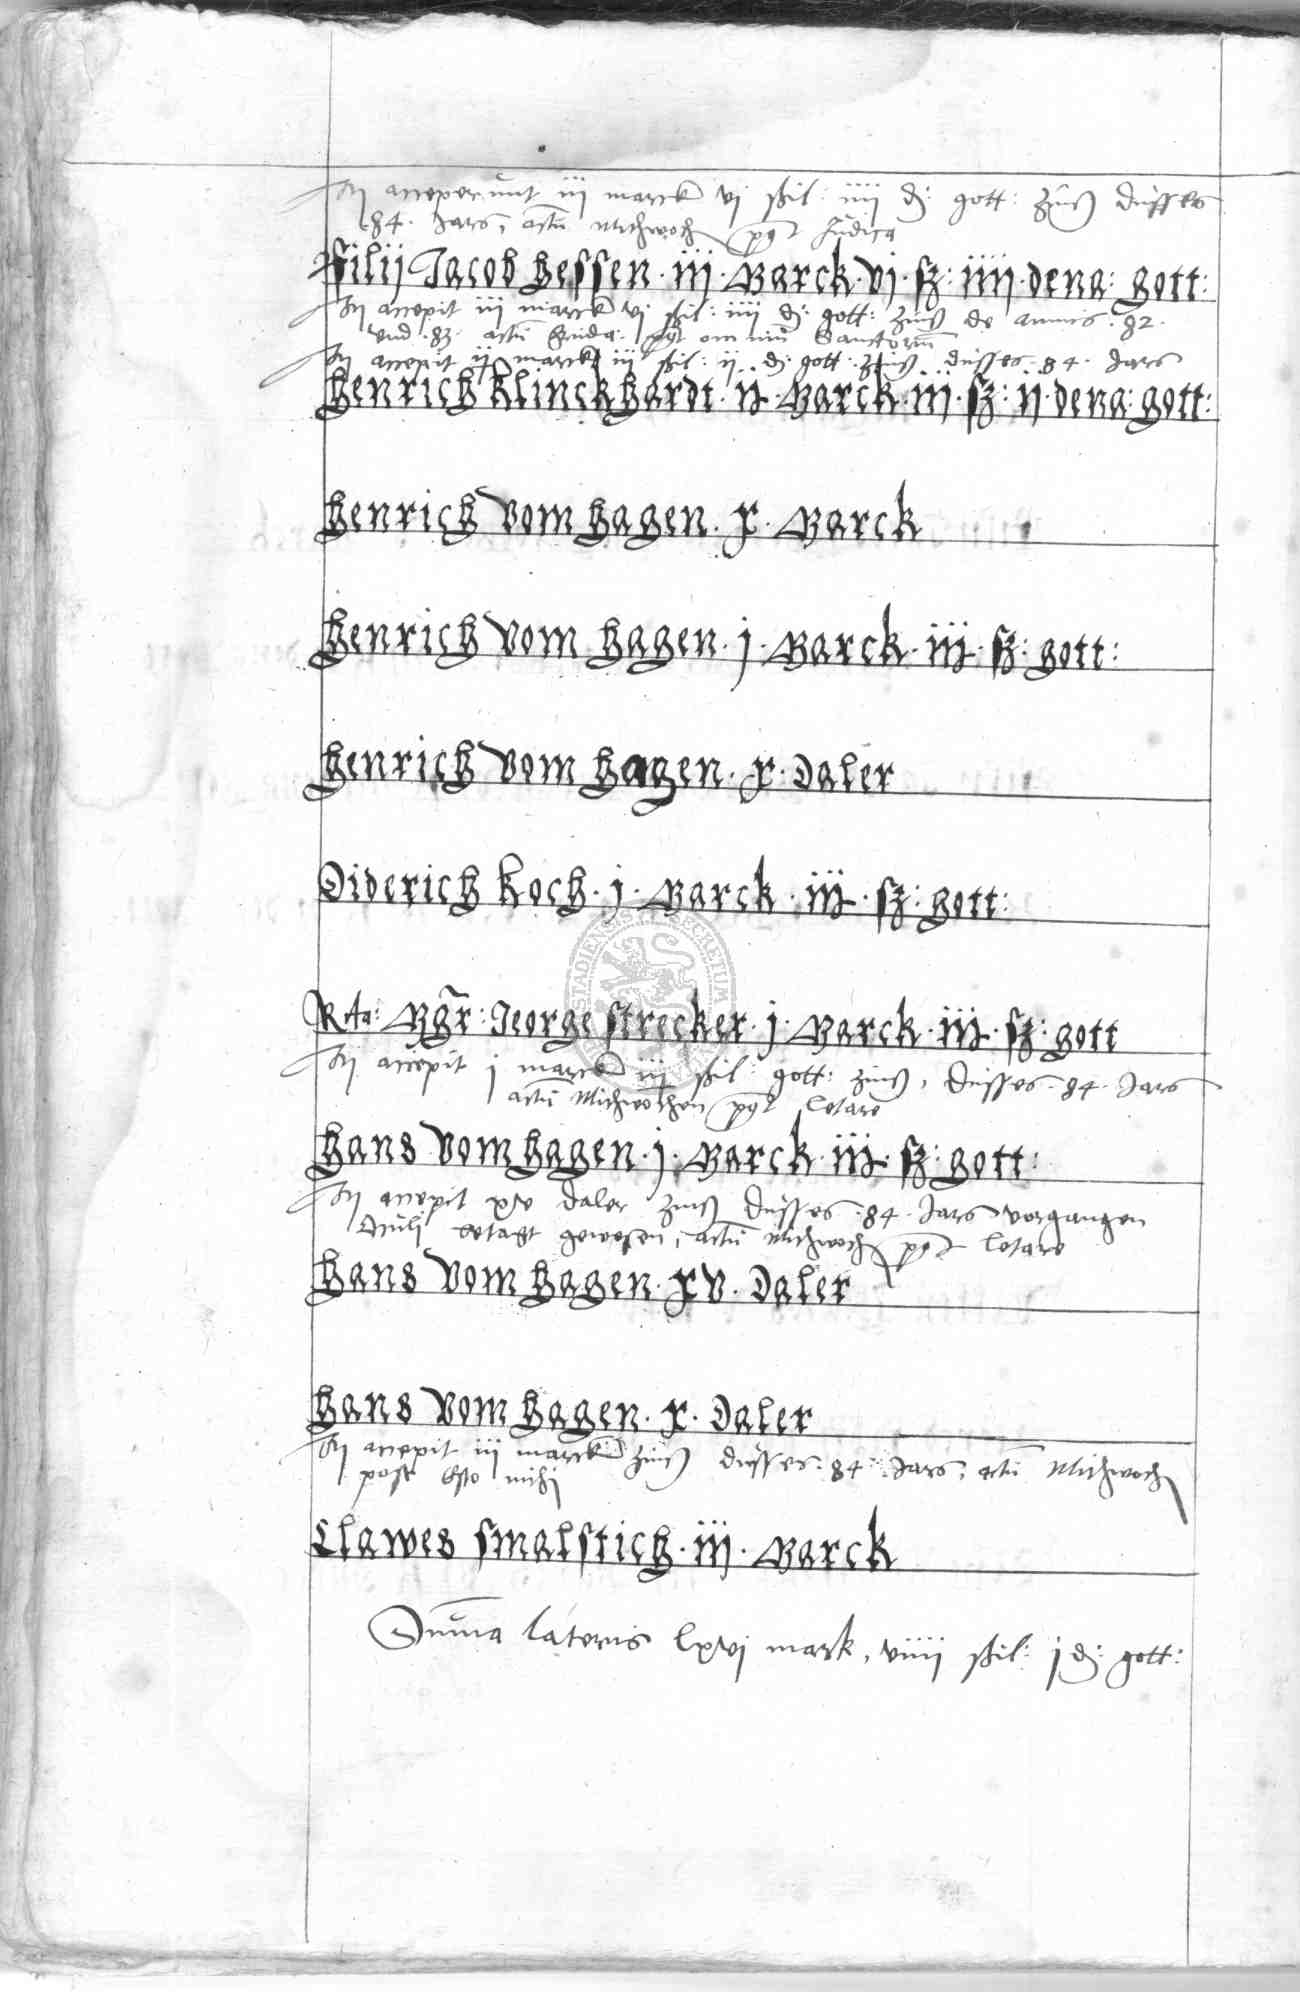 acceperunt iij marck vj ßhil: iiij d: gott: zinß dusses
84. Jars, actu Mithwoch post Judica
Filij Jacob hessen. iij. Marck. vj. ß: iiij. dena: gott:
accepit iij marck vj ßhil: iiij d: gott: zinß de annis. 82.
und. 83. actu post omniu Sanctoru
accepit ij marck iij ßhil: ij d: gott: zinß dusses. 84. Jars
henrich klinckhardt. ij. Marck. iij. ß: ij. dena: gott:
henrich vom hagen. x. Marck
henrich vom hagen. j. Marck. iij. ß: gott:
henrich vom hagen. x. Daler
Diderich koch. j. Marck. iij. ß: gott:
Rta: Mgr: Jeorge strecker. j. Marck. iij. ß: gott
accepit j marck iij ßhil: gott: zinß, dusses. 84. Jars
actu Mithwochen post letare
hans vom hagen. j. Marck. iij. ß: gott:
accepit xv daler zinß dusses. 84. Jars vorgangen
betagt gewesen, actu Mithwoch post letare
hans vom hagen. xv. Daler
hans vom hagen. x. Daler
accepit iij marck zinß dusses. 84. Jars, actu Mithwoch
post Esto mihi
Clawes smalstich. iij. Marck
Suma lateris lxvj mark, viiij ßhil: j d: gott: